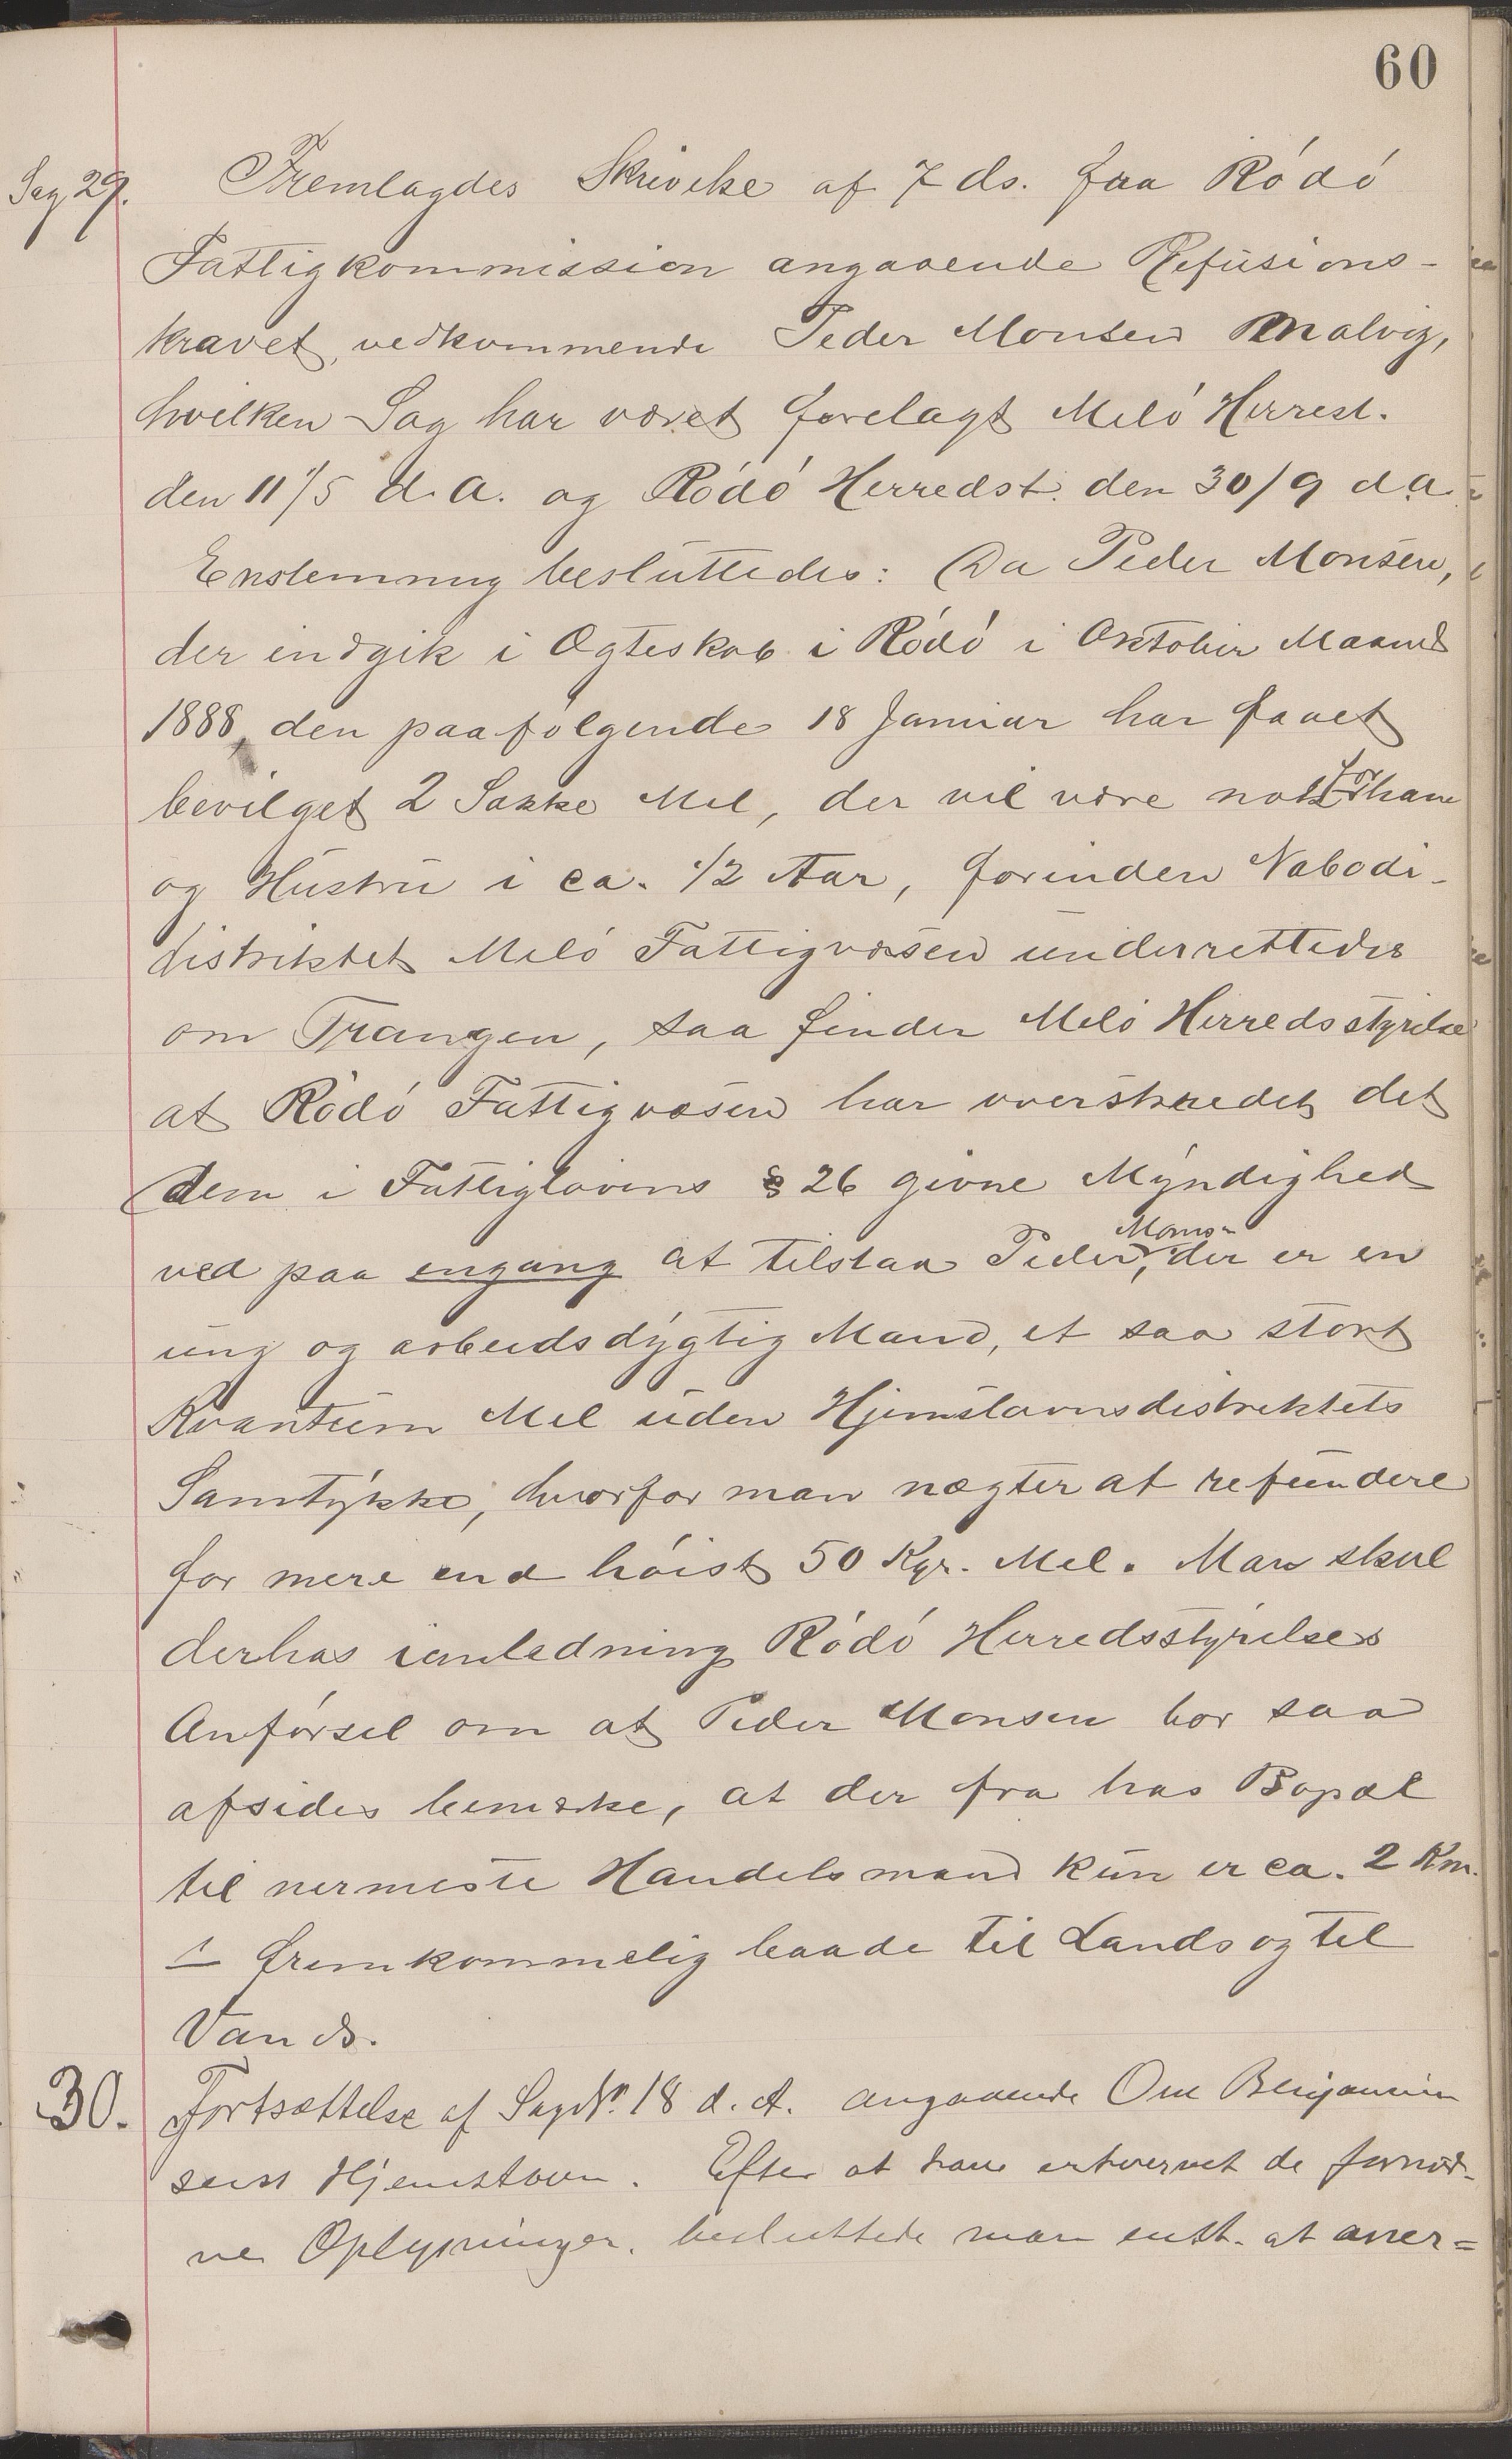 60
Sag 29. Fremlagdes Skrivelse af 7 ds. fra Rödö
Fattigkommission angaaende Refusions-
kravet, vedkommende Peder Monsen Malvig,
hvilken Sag har været forelagt Melö Herrest.
den 11/5 d. A. og Rödö Herredst. den 30/9 d. a.
Enstemmig besluttedes: Da Peder Monsen,
der indgik i Ægteskab i Rödö i Oktober Maaned
1888, den paafölgende 18 Januar har faaet
bevilget 2 Sække Mel, der vil være nok for ham
og Hustru i ca. 1/2 Aar, forinden Nabodi-
distriktet Melö Fattigvæsen underrettedes
om Trangen, saa finder Melö Herredsstyrelse
at Rödö Fattigvæsen har overskredet det
dem i Fattiglovens § 26 givne Myndighed
ved paa engang at tilstaa Peder Mons., der er en
ung og arbeidsdygtig Mand, et saa stort
Kvantum Mel uden Hjemstavnsdistriktets
Samtykke, hvorfor man nægter at refundere
for mere end höist 50 Kgr. Mel. Man skul
derhos ianledning Rödö Herredsstyrelses
Anförsel om at Peder Monsen bor saa
afsides bemærke, at der fra has Bopæl
til nærmeste Handelsmand kun er ca. 2 Km.
fremkommelig baade til Lands og til
Vands.
30. Fortsættelse af Sag No. 18 d. A. angaaende Ole Benjamin
sens Hjemstavn. Efter at have erhvervet de fornöd-
ne Oplysninger, besluttede man enst. at aner=